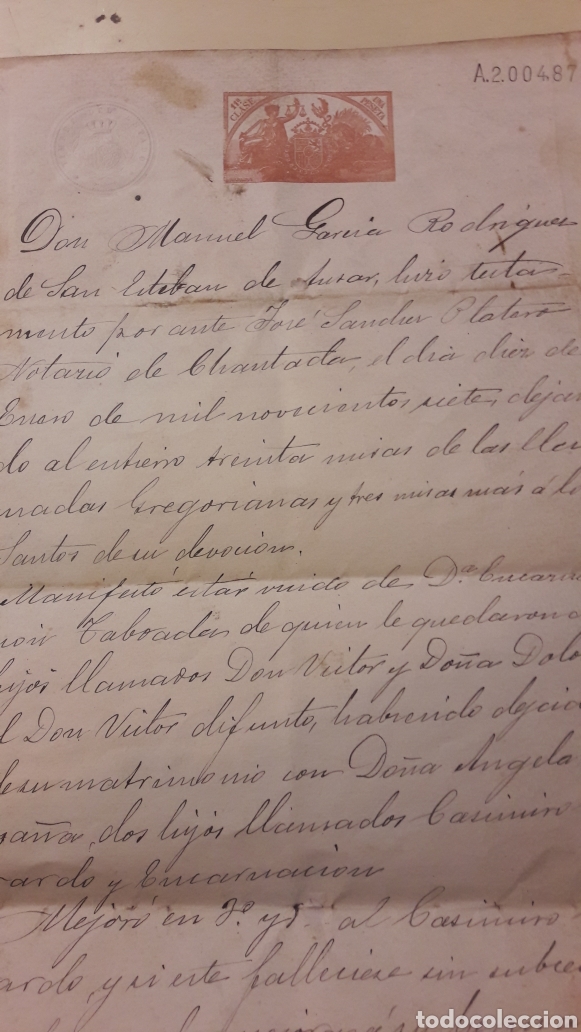 A.2.004.87
11ª CLASE
UNA PESETA
Don Manuel Garcia Rodriguez
de San Esteban de hizo testa-
mento por ante José Sanchez Platero
Notario de Chantada, el dia diez de
Enero de mil novecientos siete, dejan
do al entierro treinta misas de las lla
madas Gregorianas y tres misas más á lo
Santos de su devoción.
Manifestó estar viudo de Dª Encarna
ción Taboada, de quien le quedaron d
hijos llamados Don Victor y Doña Dolo
l Don Victor difunto, habiendo dejad
de su matrimonio con Doña Angela
paña, dos hijos llamados Casimiro
rardo y Encarnación
Mejoró en al Casimiro
ardo, y si este falleciese sin suce
todocoleccion